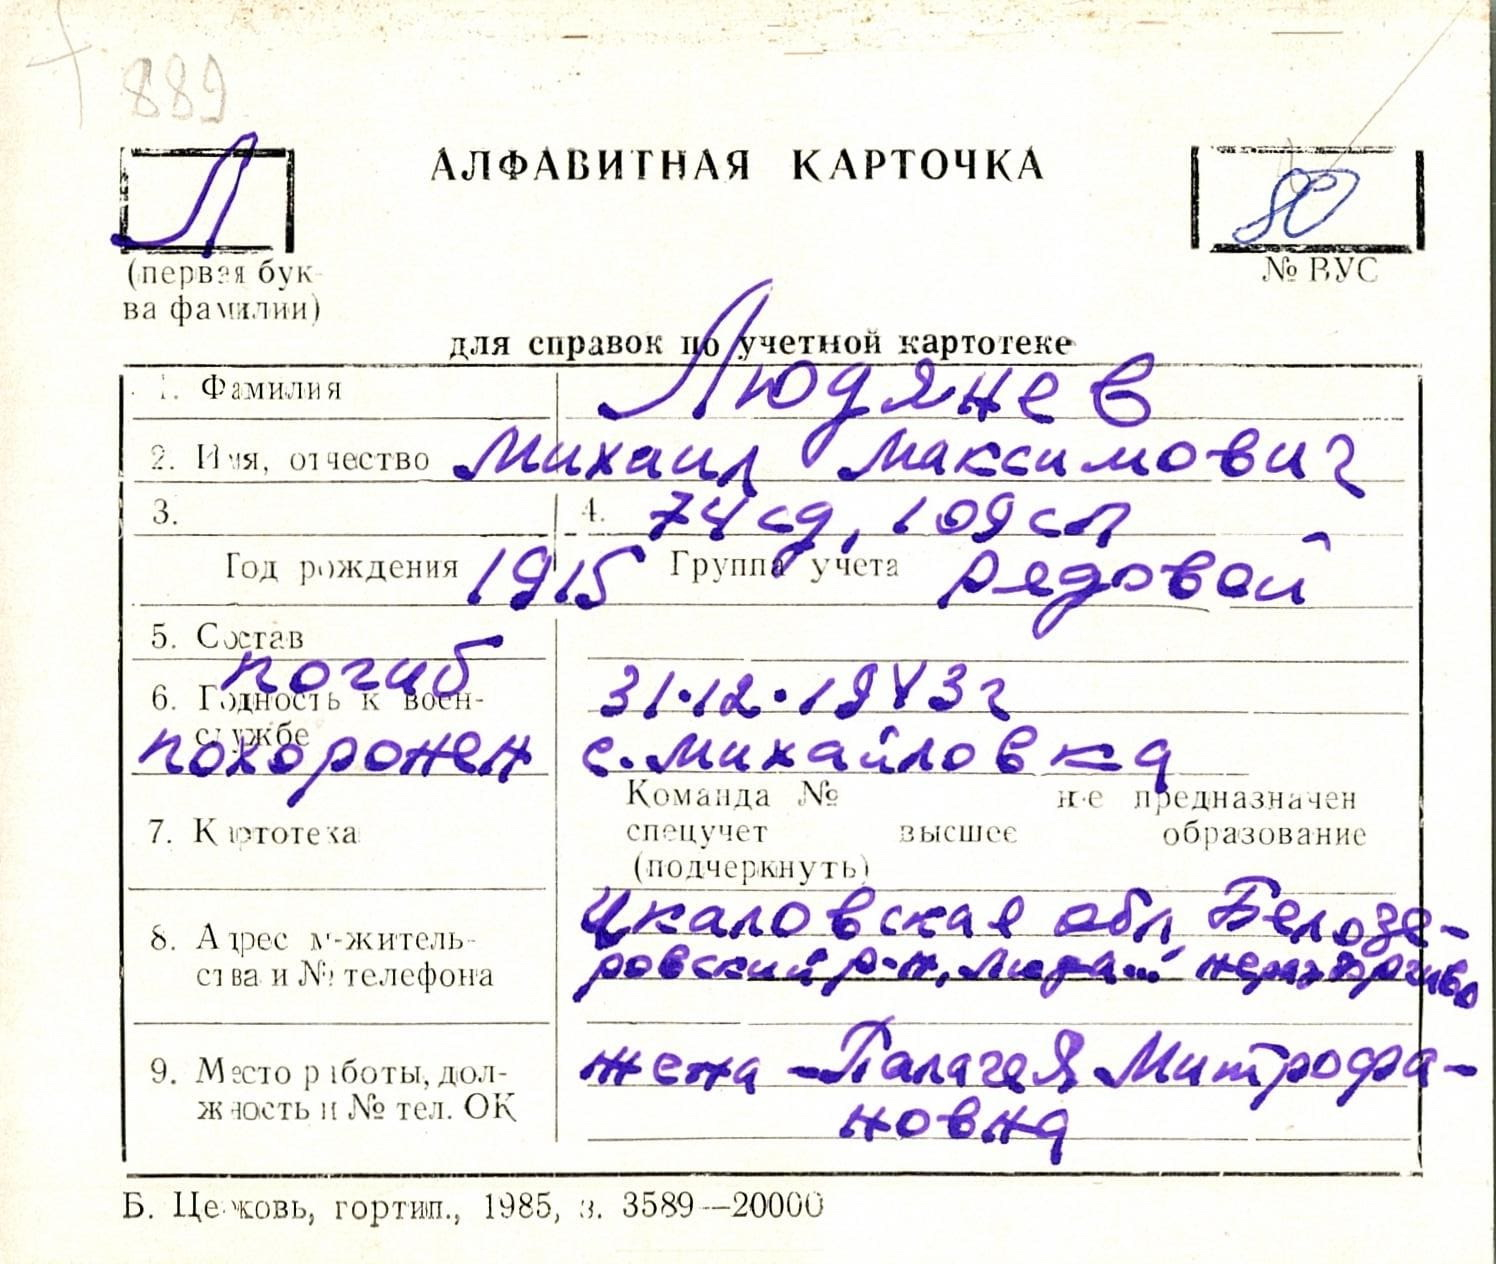 889
Л
АЛФАВИТНАЯ КАРТОЧКА
80
(первая бук-
ва фамилии)
№ ВУС
для справок по учетной картотеке
1. Фамилия Людянев
2. Имя, отчество Михаил Максимович
3. 4. 74 сд, 109 сп
Год рождения 1915 Группа учета рядовой
5. Состав
погиб 31.12.1943г
6. Годность к воен-
службе
похоронен с. Михайловка
Команда № не предназначен
7. Картотека спецучет высшее образование
(подчеркнуть)
8. Адрес м-житель- Чкаловская обл Белозе-
ства и № телефона ровский р-н, неразборчиво
9. Место работы, дол- жена - Палагея Митрофа-
жность и № тел. ОК новна
Б. Церковь, гортип., 1985, з. 3589—20000